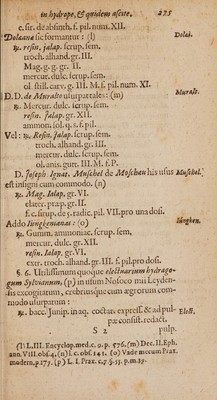 in hydrope, & quidem ascite. 275
c. sir. de absinth. f. pil. num. XII.
Dolæana sic formantur: (l)
Dolæi.
℞. resin. jalap. scrup. sem.
troch. alhand. gr. III.
Mag. g. g. gr. II.
mercur. dulc. scrup. sem.
ol. still. carv. g. III. M. f. pil. num. XI.
D. D. de Muralto usurpat tale: (m)
Muralt.
℞. Mercur. dulc. scrup. sem.
resin. jalap. gr. XII.
ammon. sol. q. s. f. pil.
Vel: ℞. Resin. jalap. scrup. sem.
troch. alhand. gr. III.
mercur. dulc. scrup. sem.
ol. anis. gutt. III. M. f. P.
D. Joseph. Ignat. Muschel de Moschau his usus
Muschel.
est insigni cum commodo, (n)
℞. Mag. Jalap. gr. VI.
elater. præp. gr. II.
f. c. sirup. de 5. radic. pil. VII. pro una dosi.
Addo Jüngkenianas: (o)
Jüngken.
℞. Gumm. ammoniac. scrup. sem.
mercur. dulc. gr. XII.
resin. Jalap. gr. VI.
extr. troch. alhand. gr. III. f. pil. pro dosi.
§. 6. Utilissimum quoque electuarium hydragogum
Sylvianum, (p) in usum Nosocomii Leydensis
excogitatum, crebriusque cum ægrotum commodo
usurpatum:
℞. bacc. Junip. in aq. coctar. express. & ad pulpæ
consist. redact.
S 2 pulp.
(l) L. III. Encyclop. med. c. 9. p. 576. (m) Dec. II. Eph.
ann. VIII. obs. 4. (n) l. c. obs. 141. (o) Vade mecum Prax.
modern. p. 177. (p) L. I. Prax. c. 7. §. 55. p. m. 39.